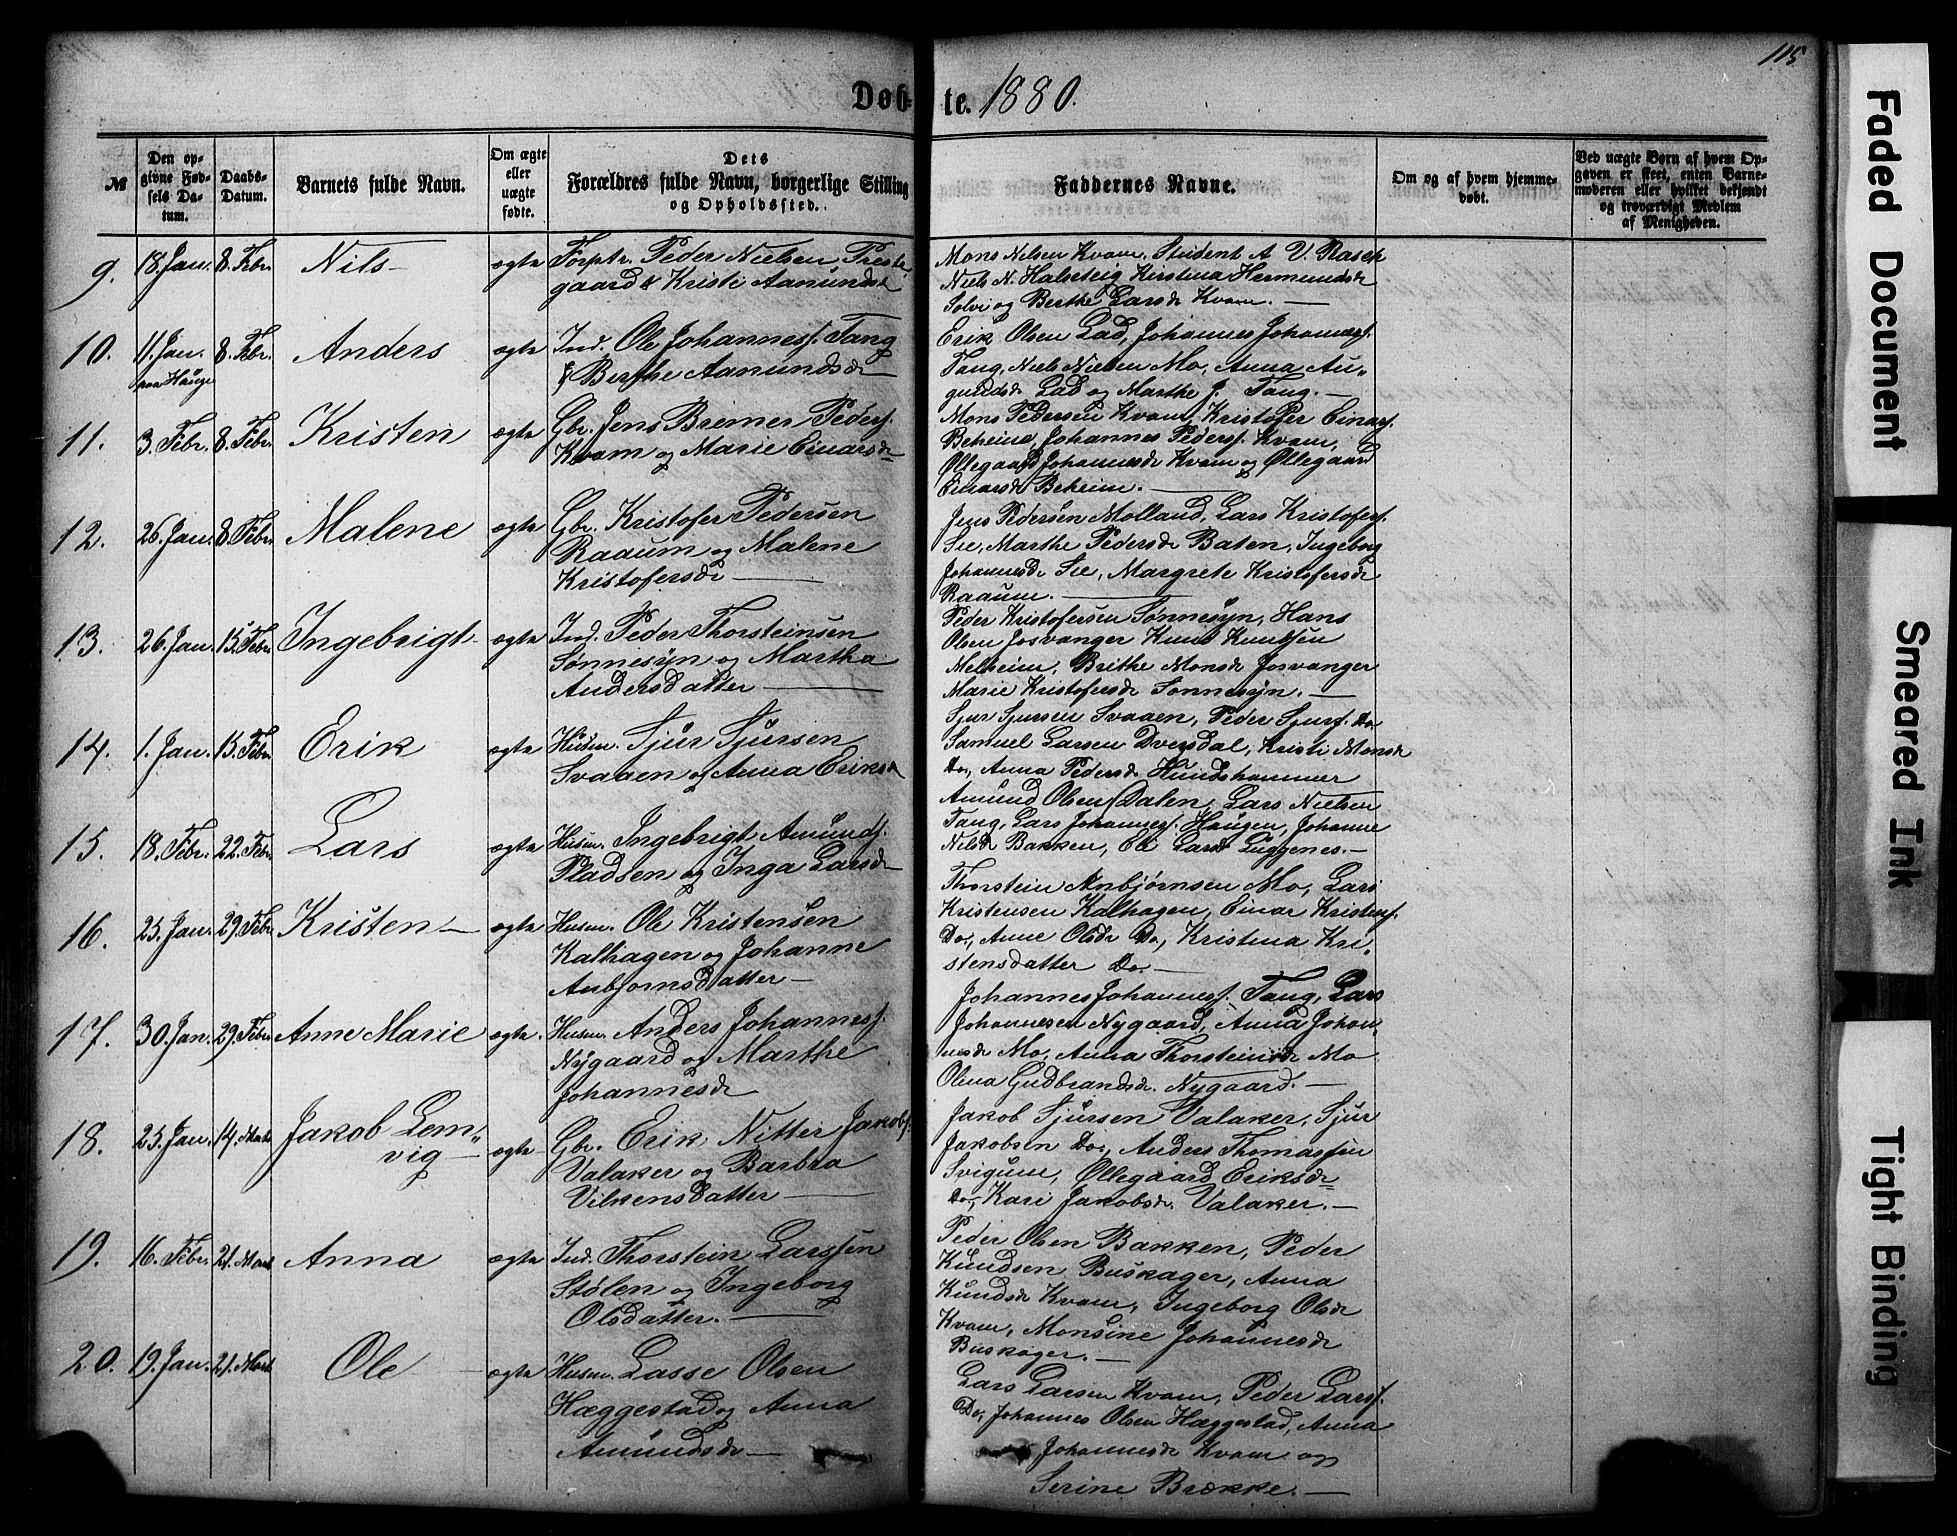 115
Døb- te. 1880.
№
Den opgivne Fødsels Datum.
Daabs-Datum.
Barnets fulde Navn.
Om ægte eller uægte fødte.
Dets Forældres fulde Navn, borgerlige Stilling og Opholdssted.
Faddernes Navne.
Om og af hvem hjemmedøbt.
Ved uægte Børn af hvem Opgaven er skeet, enten Barnemoderen eller hvilket bekjendt og troværdigt Medlem af Menigheden.
9. 18. Jan. 8. Febr. Nils ægte Forptr. Peder Nielsen Preste
gaard & Kristi Aamundsdr
Mons Nilsen Kvam, Student A V. Rasch
Niels N. Halsteig Kirstina Hermundsdr
Solvi og Berthe Larsdr Kvam.
10. 11. Jan. 8. Febr. Anders ægte Ind. Ole Johannesf. Tang
paa Hauge & Berthe Aamundsdr
Erik Olsen Lad, Johannes Johannesf.
Tang, Niels Nielsen Mo, Anna Au„
gundsdr Lad og Marthe J. Tang.
11. 3. Febr. 8. Febr. Kristen ægte Gbr. Jens Bremer Pedersf.
Kvam og Marie Einarsdr
Mons Pedersen Kvam, Kristofer Einarsf.
Beheim, Johannes Pedersf. Kvam,
Øllegaard Johannesdr Kvam og Øllegaard
Einarsdr Beheim.
12. 26. Jan. 8. Febr. Malene ægte Gbr. Kristofer Pedersen
Raaum og Malene
Kristofersdr
Jens Pedersen Molland, Lars Kristofersf.
See, Marthe Pedersdr Baten, Ingeborg
Johannesdr See, Margrete Kristofersdr
Raaum.
13. 26. Jan. 15. Febr. Ingebrigt ægte Ind. Peder Thorsteinsen
Sønnesyn og Martha
Andersdatter
Peder Kristofersen Sønnesyn, Hans
Olsen Josvanger Knut Knutsen
Melheim, Brithe Monsdr Josvanger
Marie Kristofersdr Sønnesyn.
14. 1. Jan. 15. Febr. Erik ægte Husm. Sjur Sjursen
Svaaen og Anna Eriksdr
Sjur Sjursen Svaaen, Peder Sjursf. Do.
Samuel Larsen Dversdal, Kristi Monsdr
Do, Anna Pedersdr Hundshammer
15. 18. Febr. 22. Febr. Lars ægte Husm. Ingebrigt Amundsf.
Pladsen og Inga Larsdr
Amund Olsen Dalen, Lars Nielsen
Tang, Lars Johannesf. Haugen, Johanne
Nilsdr Bakken, Eli Larsdr Luggenes.
16. 25. Jan. 29. Febr. Kristen ægte Husm. Ole Kristensen
Kalhagen og Johanne
Anbjørnsdatter
Thorstein Anbjørnsen Mo, Lars
Kristensen Kalhagen, Einar Kristensf.
Do, Anne Olsdr Do, Kristina Kri„
stensdatter Do.
17. 30. Jan. 29. Febr. Anne Marie ægte. Husm. Anders Johannesf.
Nygaard og Marthe
Johannesdr
Johannes Johannesf. Tang, Lars
Johannesen Nygaard, Anna Johan„
nesdr Mo, Anna Thorsteinsdr Mo
Olina Gudbrandsdr. Nygaard.
18. 25. Jan. 14. Marts Jakob Lem„
vig ægte Gbr. Erik Nitter Jakobsf.
Valaker og Barbra
Vilkensdatter
Jakob Sjursen Valaker, Sjur
Jakobsen Do., Anders Thomassen
Svigum, Øllegaard Eriksdr
Do, Kari Jakobsdr. Valaker.
19. 16. Febr. 21. Marts Anna ægte Ind. Thorstein Larssen
Stølen og Ingeborg
Olsdatter.
Peder Olsen Bakken, Peder
Knudsen Buskager, Anna
Knudsdr Kvam, Ingeborg Olsdr
Kvam, Monsine Johannesdr
Buskager.
20. 19. Jan. 21. Marts Ole ægte Husm. Lasse Olsen
Hæggestad og Anna
Amundsdr
Lars Larsen Kvam, Peder Larsf.
Do, Johannes Olsen Hæggestad, Anna
Johannesdr Kvam og
Serine Brække.
Faded Document
Smeared Ink
Tight Binding